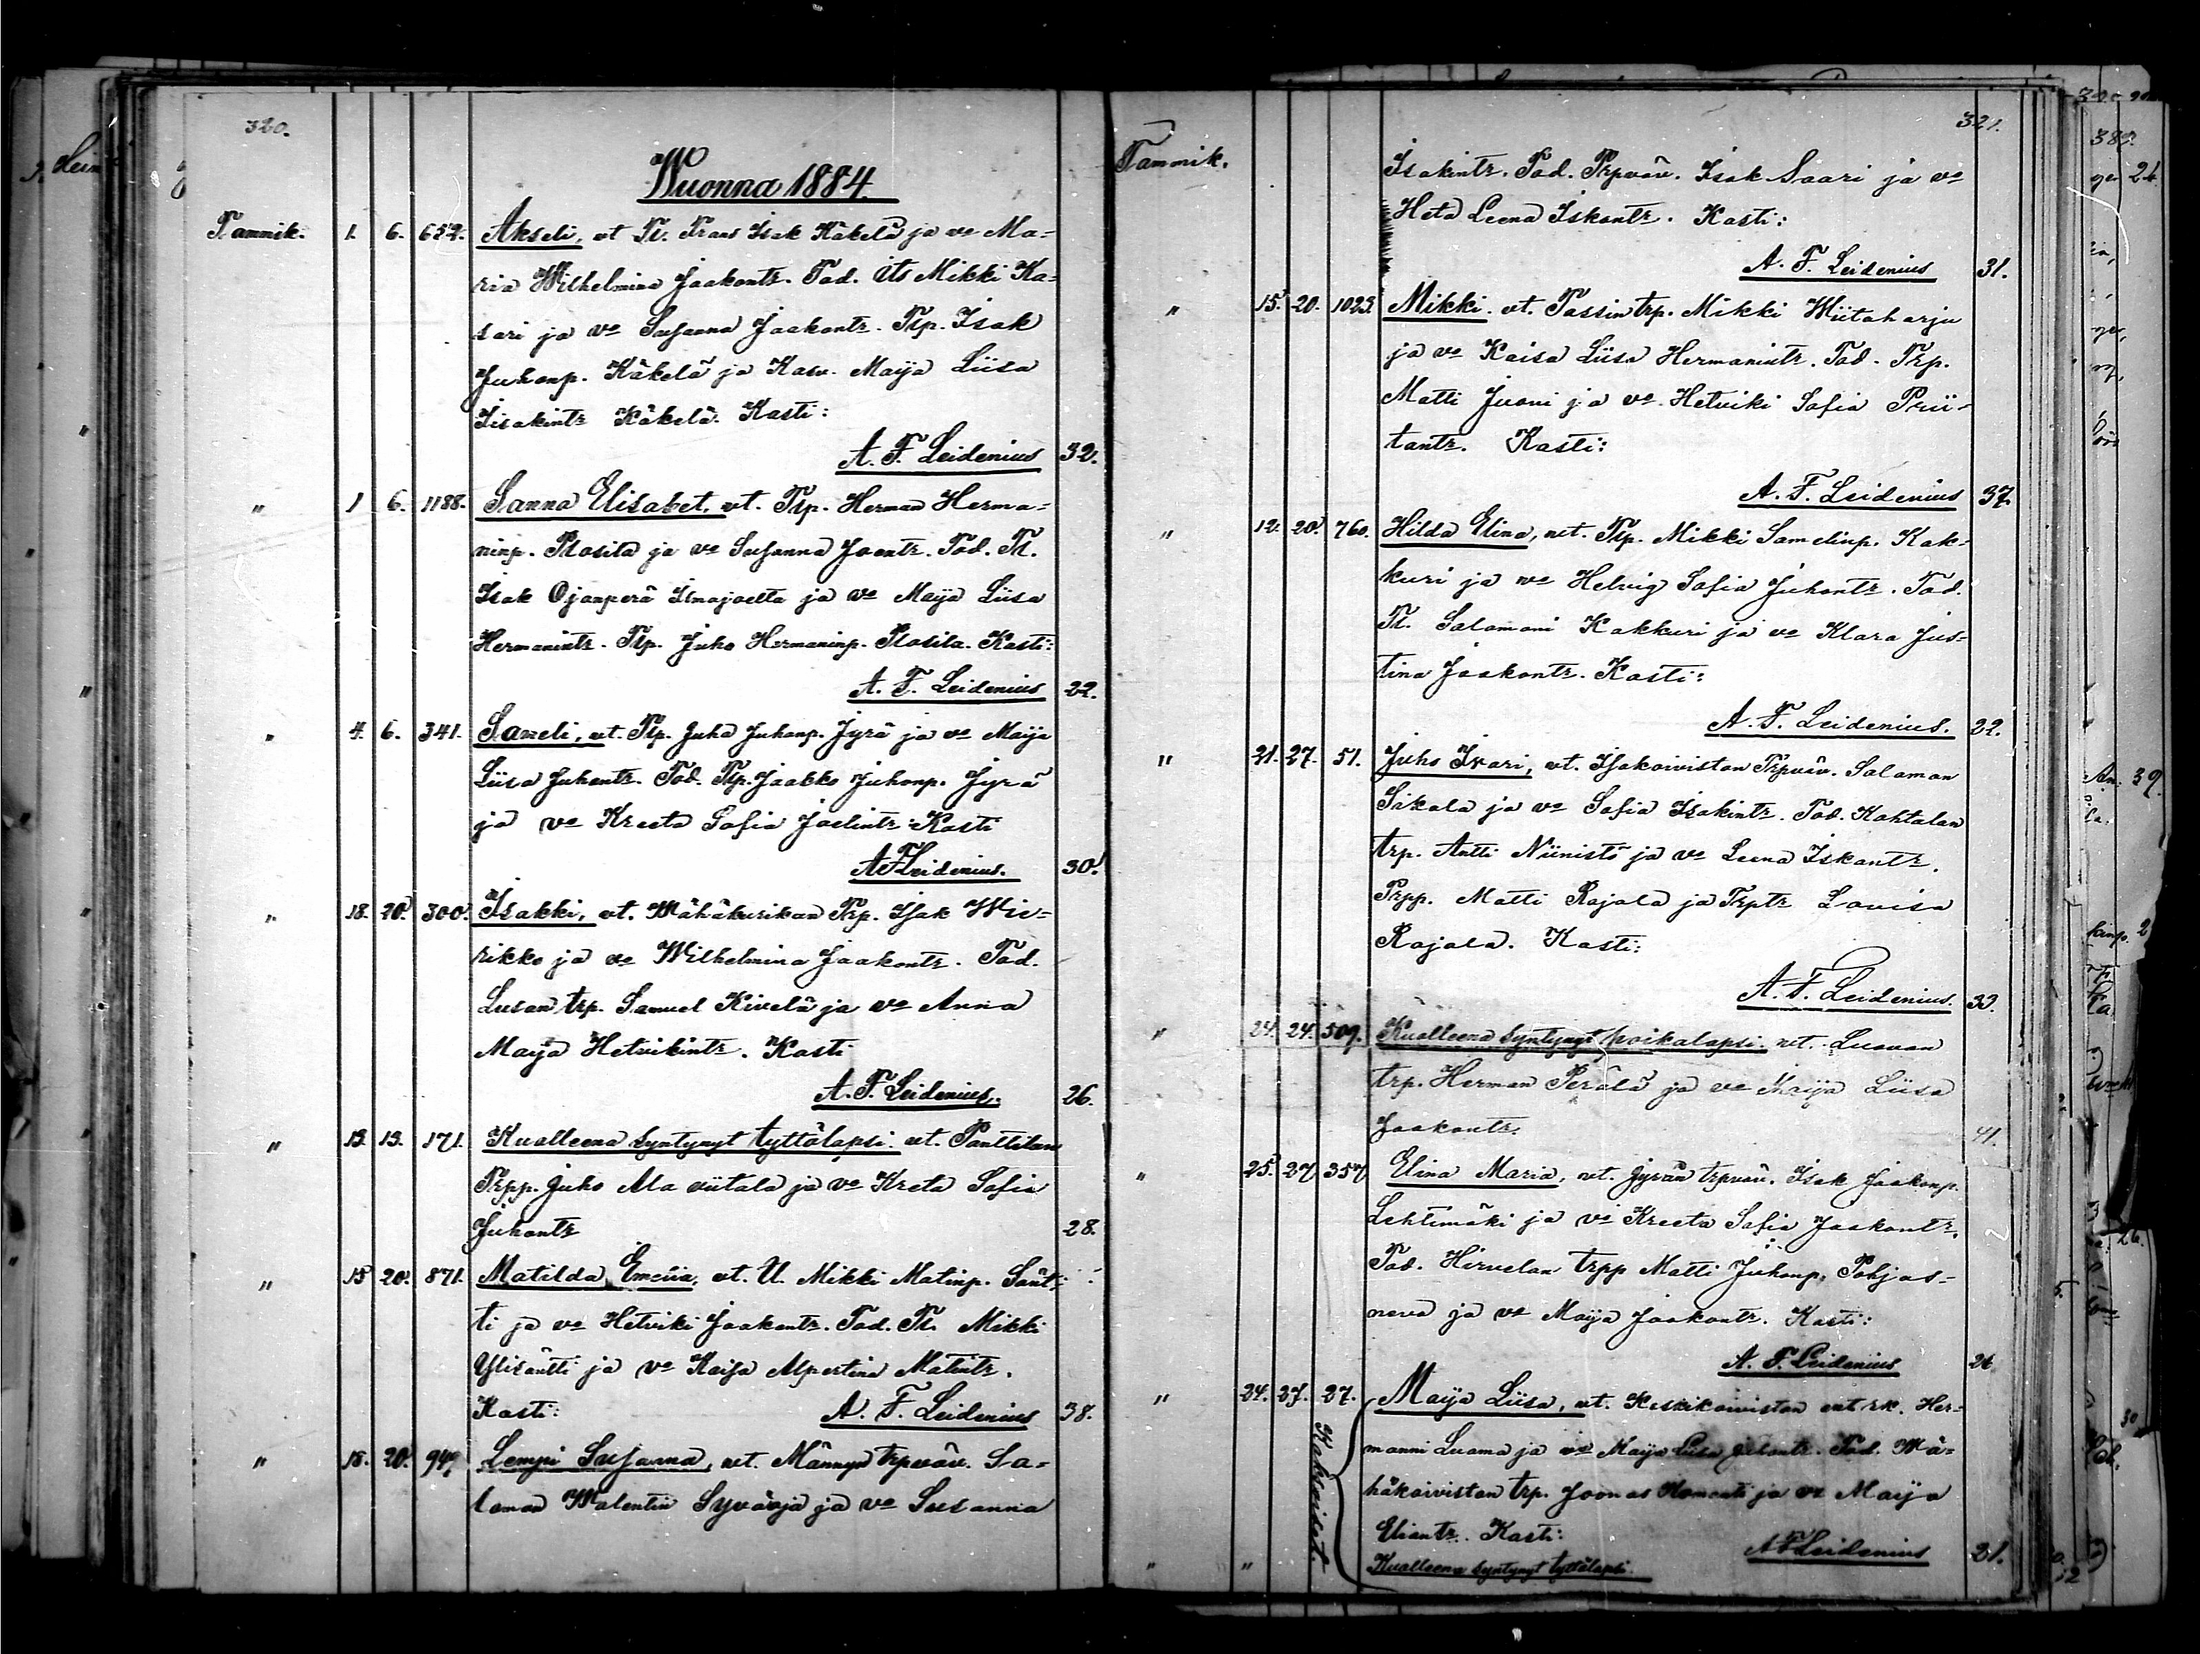 320.
Wuonna 1884.
Tammik. 1. 6. 652. Akseli, vt Tl. Frans Isak Käkelä ja vo Ma-
ria Wilhelmina Jaakontr. Tod. its Mikki Ka-
sari ja vo Susanna Jaakontr. Tlp. Isak
Juhonp. Käkelä ja Kasv. Maija Liisa
Iisakintr Käkelä. Kasti:
A. F. Leidenius 32.
" 1 6. 1188. Sanna Elisabet, vt. Tlp. Herman Herma-
ninp. Plosila ja vo Susanna Joontr. Tod. Tl.
Isak Ojanperä Ilmajoelta ja vo Maija Liisa
Hermanintr. Tlp. Juho Hermaninp. Plosila. Kasti:
A. F. Leidenius 22.
" 4. 6. 341. Sameli, vt. Tlp. Juha Juhonp. Jyrä ja vo Maija
Liisa Juhontr. Tod. Tlp. Jaakko Juhonp. Jyrä
ja vo Kreeta Sofia Joelintr: Kasti
A F Leidenius. 30.
" 18. 20. 300. Isakki, vt. Wähäkurikan Trp. Isak Wie-
rikko ja vo Wilhelmina Jaakontr. Tod.
Lusan trp. Samuel Kivelä ja vo Anna
Maija Hetvikintr. Kasti
A. F. Leidenius. 26.
" 13. 13. 171. Kuolleena syntynyt tyttölapsi. vt. Panttilan
Trpp. Juho Ala viitala ja vo Kreta Sofia
Juhontr 28.
" 15 20. 871. Matilda Emelia, vt. U. Mikki Matinp. Sänt-
ti ja vo Hetviki Jaakontr. Tod. Tl. Mikki
Ylisäntti ja vo Kaisa Alpertina Matintr.
Kasti: A. F. Leidenius 38.
" 18. 20. 949. Lempi Susanna, vt. Männyn trpväv. Sa-
lomon Walentin Syväoja ja vo Susanna
321.
Tammik. Isakintr. Tod. Trpväv. Isak Saari ja vo
Heta Leena Iskontr. Kasti:
A. F. Leidenius 31.
" 15. 20. 1023. Mikki. vt. Tassin trp. Mikki Wiitaharju
ja vo Kaisa Liisa Hermanintr. Tod. Trp.
Matti Juoni ja vo Hetviki Sofia Prii-
tantr. Kasti:
A. F. Leidenius 37.
" 12. 20. 760. Hilda Elina, vt. Tlp. Mikki Samelinp. Kak-
kuri ja vo Helvig Sofia Juhontr. Tod.
Tl. Salomoni Kakkuri ja vo Klara Jus-
tina Jaakontr. Kasti:
A. F. Leidenius. 22.
" 21. 27. 51. Juho Ivari, vt. Isokoiviston Trpväv. Salomon
Sikala ja vo Sofia Isakintr. Tod. Kohtalan
trp. Antti Niinistö ja vo Leena Iskontr.
Trpp. Matti Rajala ja Trptr Lovisa
Rajala. Kasti:
A. F. Leidenius. 33.
" 24. 24. 509. Kuolleena syntynyt poikalapsi. vt. Luovan
trp. Herman Perälä ja vo Maija Liisa
Jaakontr. 41.
" 25. 27 357 Elina Maria, vt. Jyrän trpväv. Isak Jaakonp.
Lehtimäki ja vo Kreeta Sofia Jaakontr.
Tod. Hirvelan trpp Matti Juhonp. Pohjas-
neva ja vo Maija Jaakontr. Kasti:
A. F. Leidenius 26
" 24. 27. 27. Maija Liisa, vt. Keskikoiviston ent rk. Her-
manni Luoma ja vo Maija Liisa Juhontr. Tod. Wä-
häkoiviston trp. Joonas Klomonti ja vo Maija
Eliantr. Kasti:
A F Leidenius 21.
" " Kuolleena syntynyt tyttölapsi
Kaksoiset.